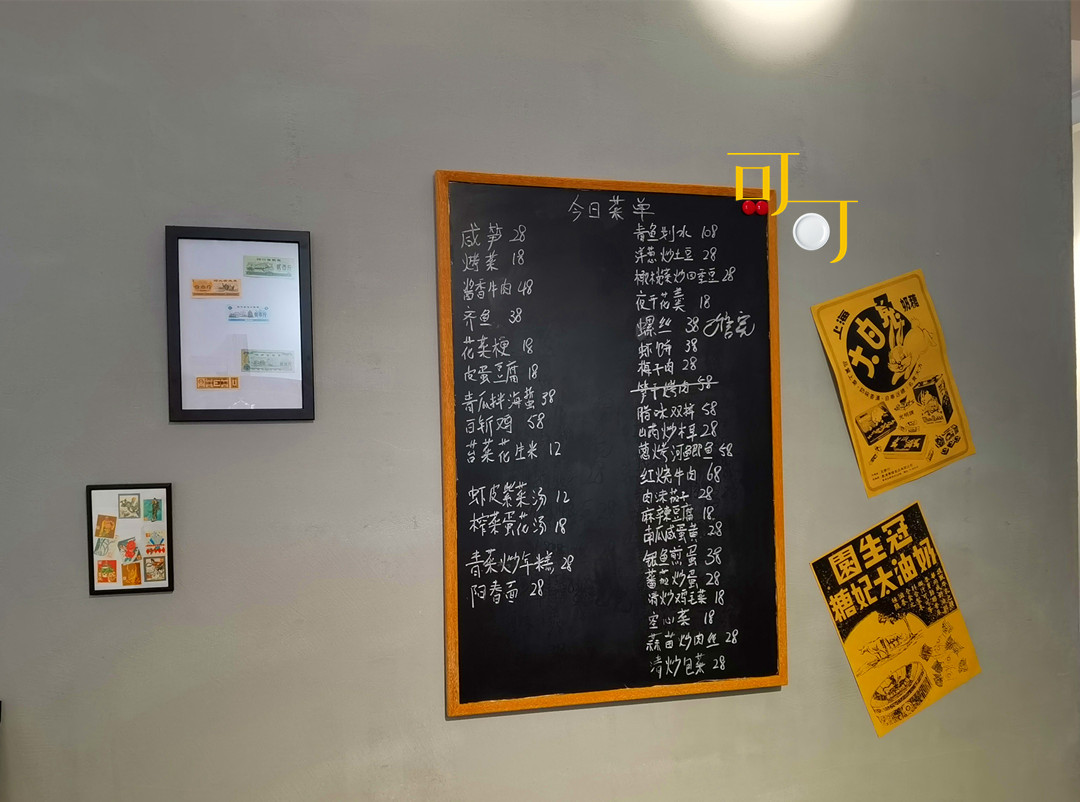 今日菜单
咸笋 28
烤菜 18
酱香牛肉 48
齐鱼 38
花菜梗 18
皮蛋豆腐 18
青瓜拌海蜇 38
白斩鸡 58
苔菜花生米 12
虾皮紫菜汤 12
榨菜蛋花汤 18
青菜炒年糕 28
阳春面 28
青鱼划水 108
洋葱炒土豆 28
橄榄菜炒四季豆 28
夜干花菜 18
螺丝 38 售完
虾饼 38
梅干肉 28
笋干烤肉 58
腊味双拼 58
山药炒木耳 28
葱烤河鲫鱼 58
红烧牛肉 68
肉沫茄子 28
麻辣豆腐 18
南瓜咸蛋黄 28
银鱼煎蛋 38
蕃茄炒蛋 28
清炒鸡毛菜 18
空心菜 18
蒜苗炒肉丝 28
清炒包菜 28
可可
上海
大白兔
奶糖
冠生園
奶油太妃糖